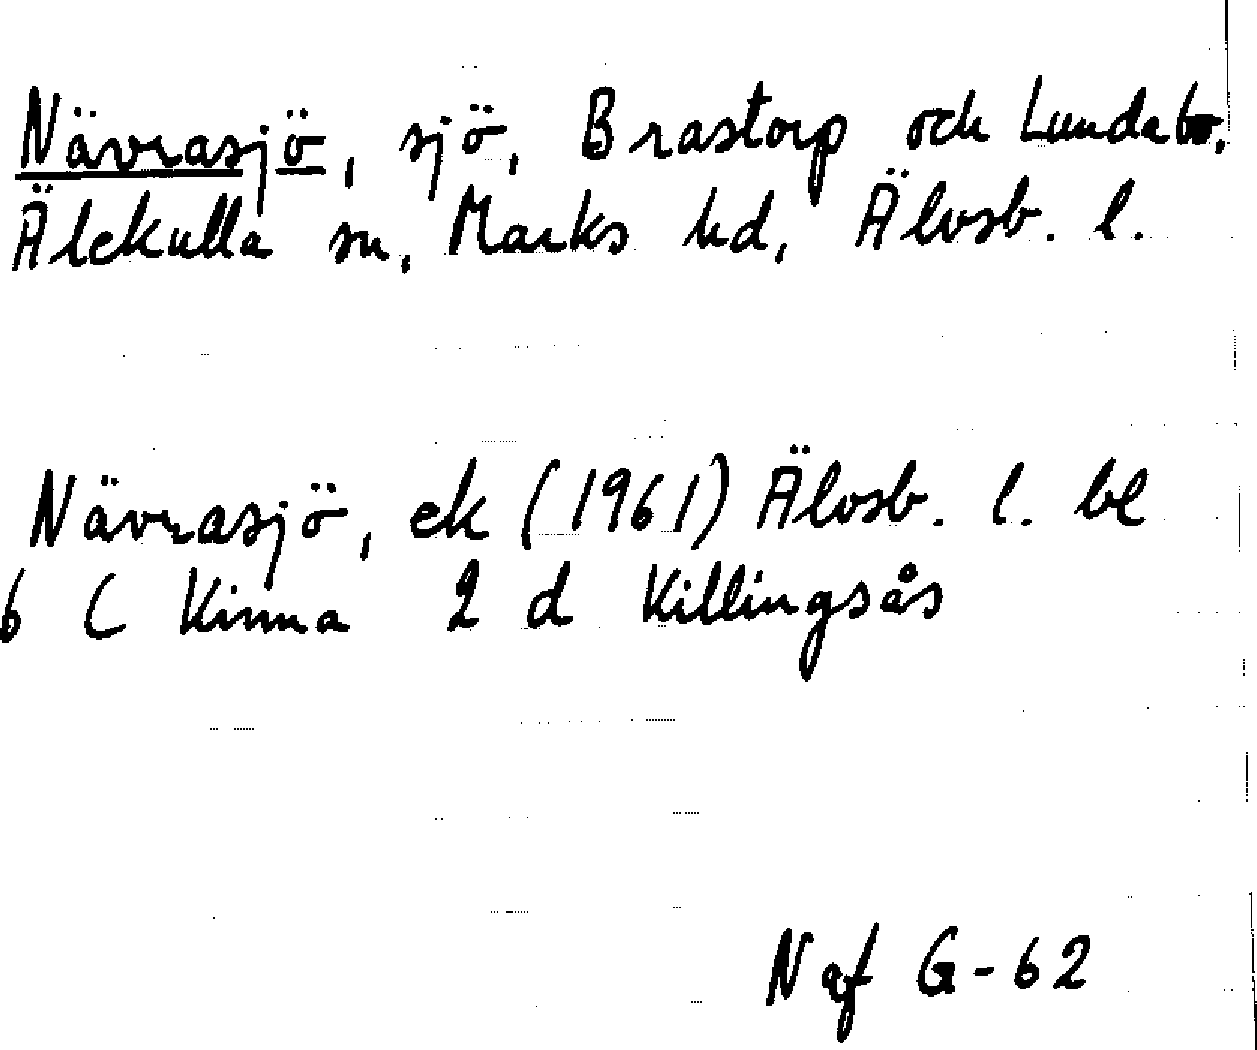 Nävrasjö, sjö, Brastorp och Lundabo,
Älekulla sn, Marks hd, Älvsb. l.
Nävrasjö, ek (1961) Älvsb. l. bl
6 C Kinna 2 d Killingsås
Naf G-62